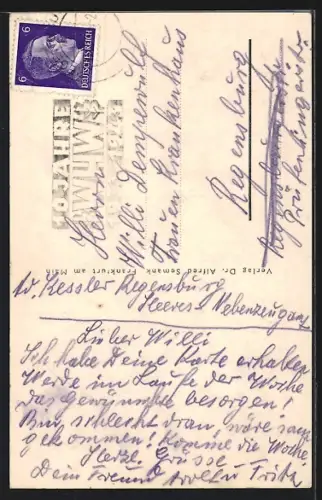 6 DEUTSCHES REICH 6
10 JAHRE
WHW
Herrn
Willi
Frauen Krankenhaus
Regensburg
Verlag Dr. Alfred Semank Frankfurt am Main
Kessler Regensburg
Heeres-Nebenzeugamt
Lieber Willi
Ich habe Deine Karte erhalten
Werde im Laufe der Woche
das gewünschte besorgen!
Bin schlecht dran, wäre sonst
gekommen! Komme die Woche
Herzl. Grüsse
Dein Freund Fritz